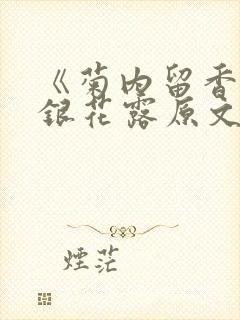 《菊内留香
銀花露原文
煙茫